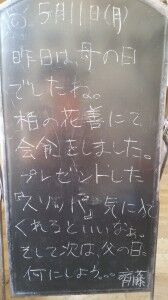 5月11日(月)
昨日は、母の日
でしたね。
柏の花善にて
会食をしました。
プレゼントした
"スリッパ"気に入って
くれるといいなぁ。
そして次は、父の日。
何にしよう。。齊藤